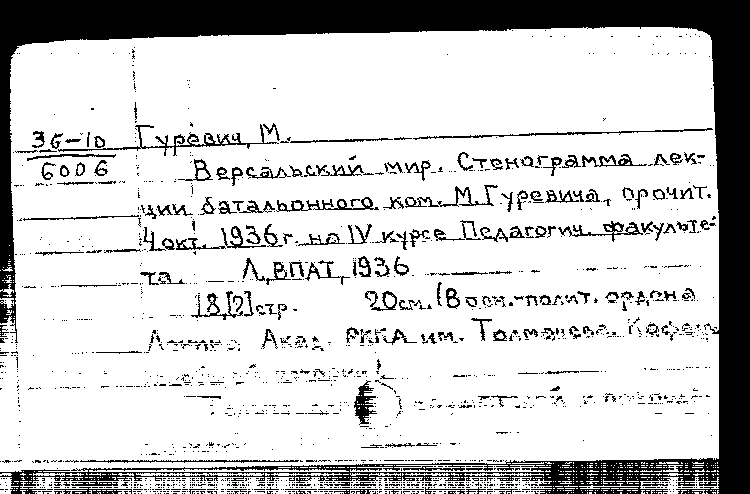 36-10 Гуревич, М.
6006 Версальский мир. Стенограмма лек-
ции батальонного ком. М. Гуревича, прочит.
4 окт. 1936 г. на IV курсе Педагогич. факульте-
та. Л., ВПАТ, 1936
18,[2] стр. 20 см. (Воен.-полит. ордена
Ленина Акад. РККА им. Толмачева. Кафед.
истории)
Только для